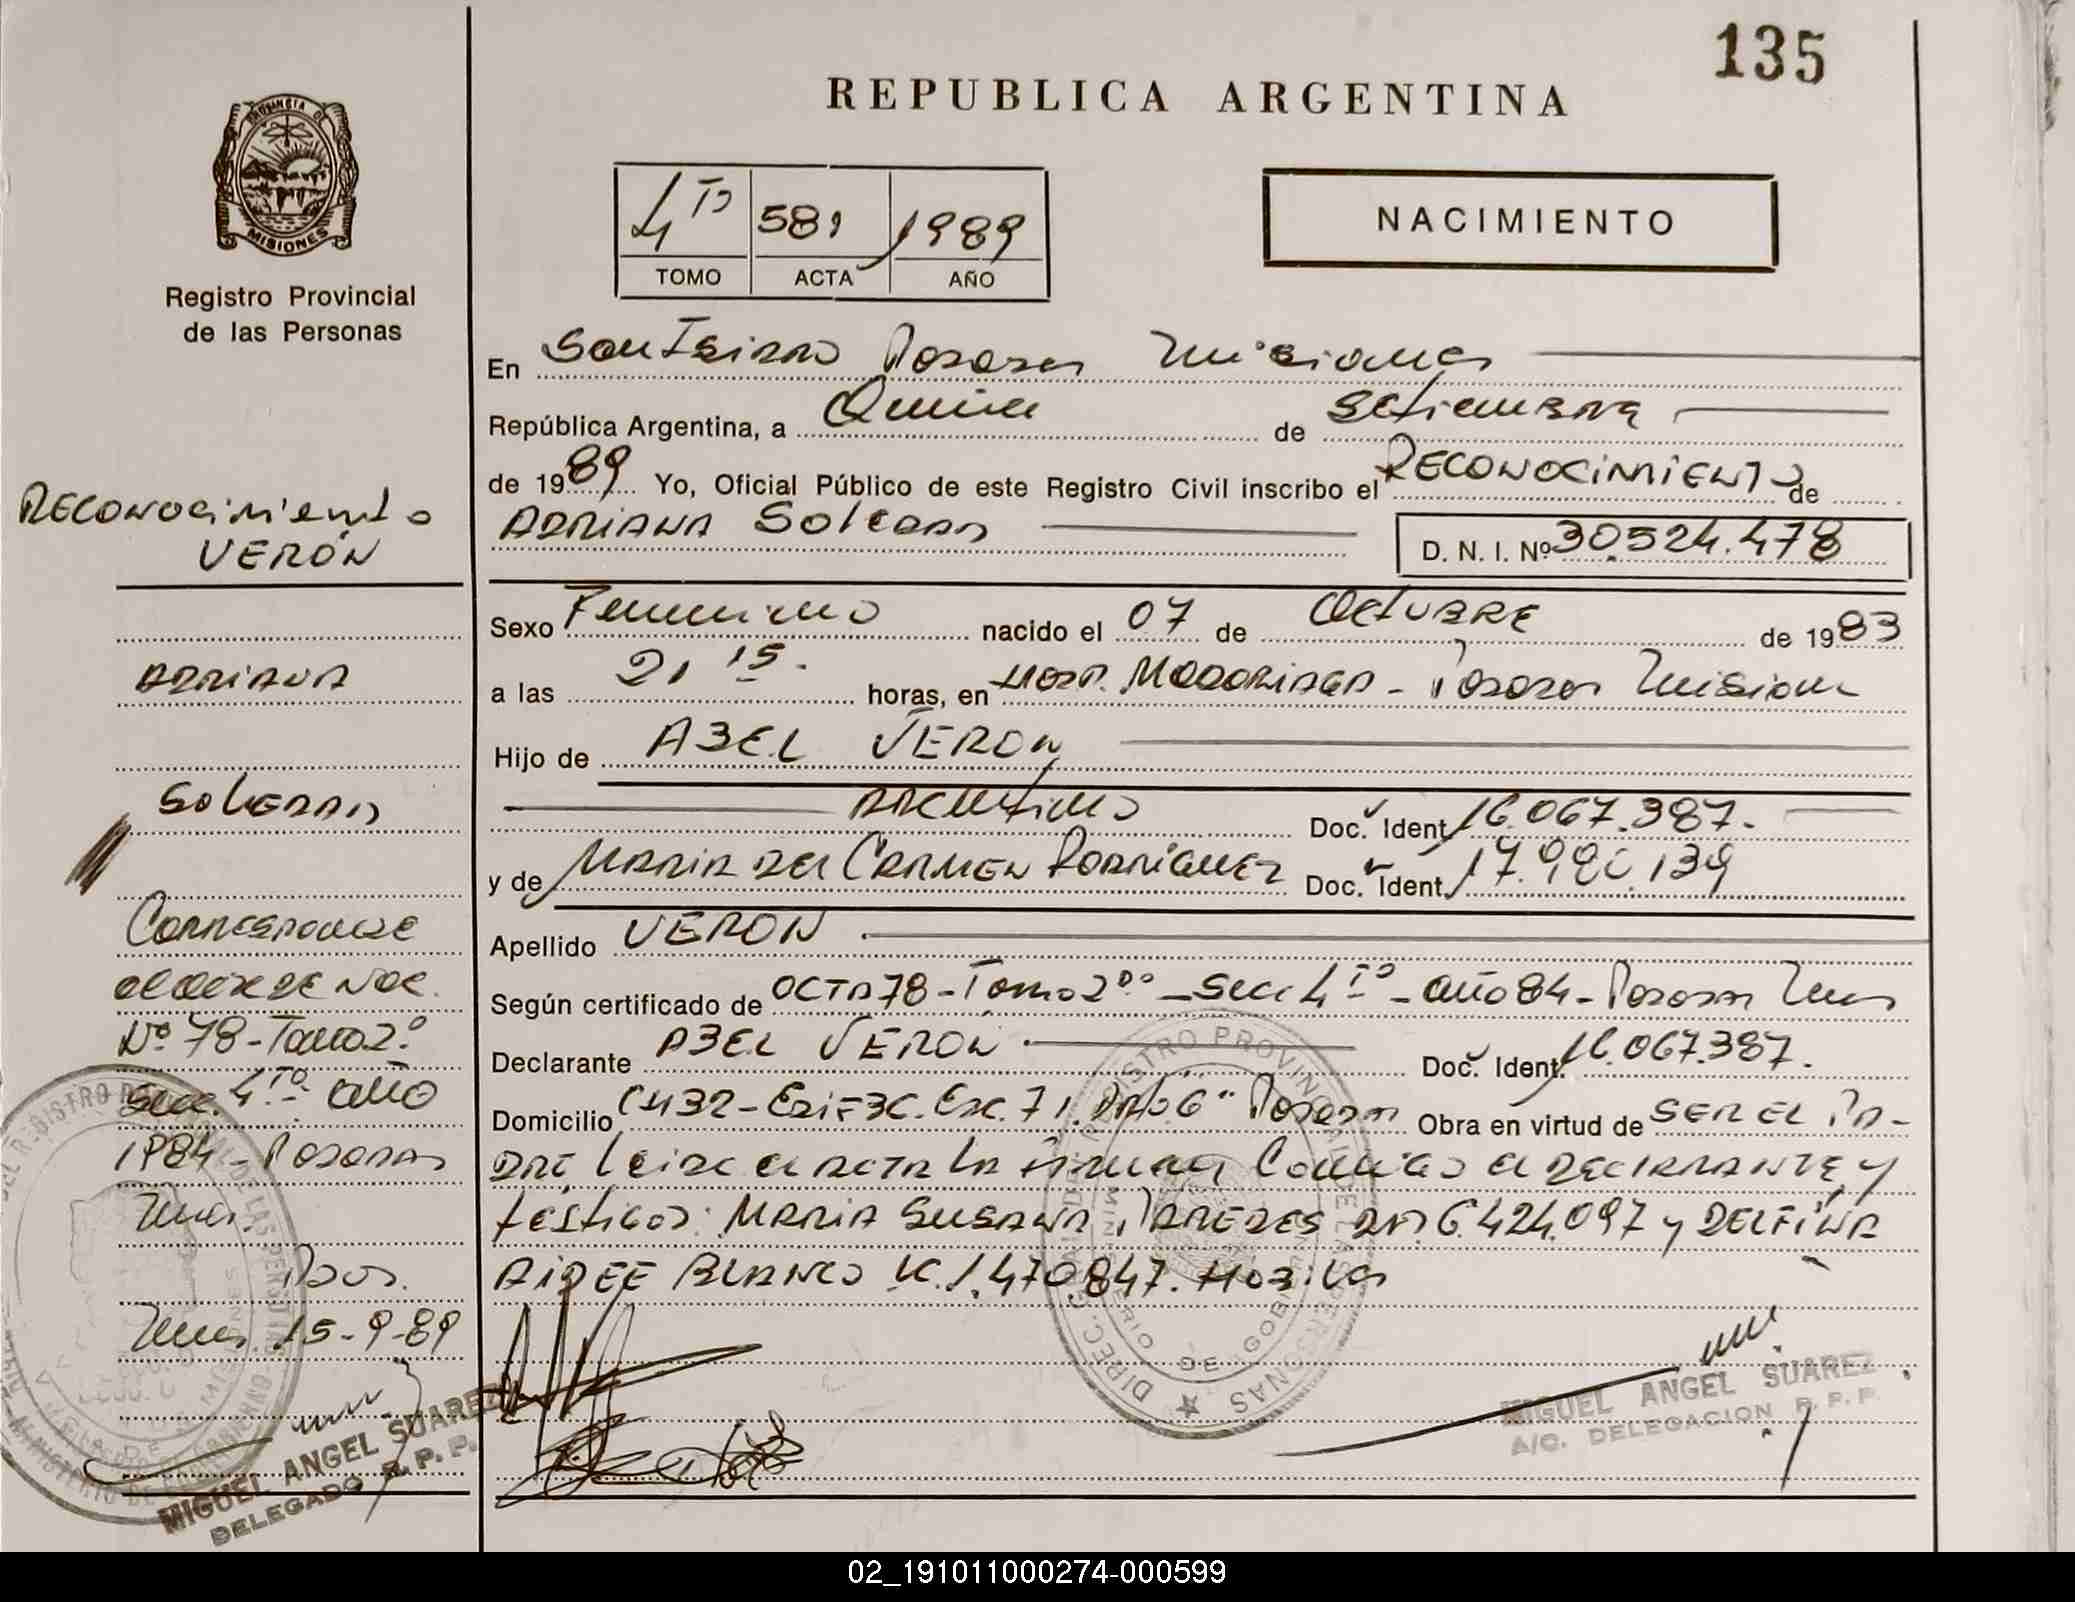 135
REPUBLICA ARGENTINA
PROVINCIA DE
MISIONES
Registro Provincial
de las Personas
4TO 581 1989
TOMO ACTA AÑO
NACIMIENTO
En San Isidro Posadas Misiones
República Argentina, a Quince de Setiembre
de 1989 Yo, Oficial Público de este Registro Civil inscribo el RECONOCIMIENTO de
ADRIANA Soledad D. N. I. Nº 30.524.478
Sexo Femenino nacido el 07 de OCTUBRE de 1983
a las 21 15. horas, en HOSP. MADARIAGA - Posadas Misiones
Hijo de ABEL VERON
ARGENTINO Doc. Ident. 16.067.387.
y de MARIA DEL CARMEN RODRIGUEZ Doc. Ident. 17.980.139
Apellido VERON
Según certificado de ACTA 78 - Tomo 2do - Secc 4To - año 84 - Posadas Mnes
Declarante ABEL VERON Doc. Ident. 16.067.387.
Domicilio CH 32 - Edif 3C. Esc. 71. DPTO 6" Posadas Obra en virtud de SER EL PA-
DRE leida el ACTA la firman Conmigo el DECLARANTE y
testigos: MARIA SUSANA PAREDES DNI. 6.424.097 y DELFINA
AIDEE BLANCO LC. 1.470847. Hábiles
RECONOCIMIENTO
VERÓN
ADRIANA
SOLEDAD
CORRESPONDE
al acta de NAC.
Nº 78 - Tomo 2º
Secc. 4TO año
1984 - Posadas
Mnes.
Pdas.
Mnes. 15-9-89
MIGUEL ANGEL SUAREZ
DELEGADO R. P. P.
DIREC. GRAL. DEL REGISTRO PROVINCIAL DE LAS PERSONAS
MINISTERIO DE GOBIERNO
MIGUEL ANGEL SUAREZ
A/C. DELEGACION R. P. P.
02_191011000274-000599